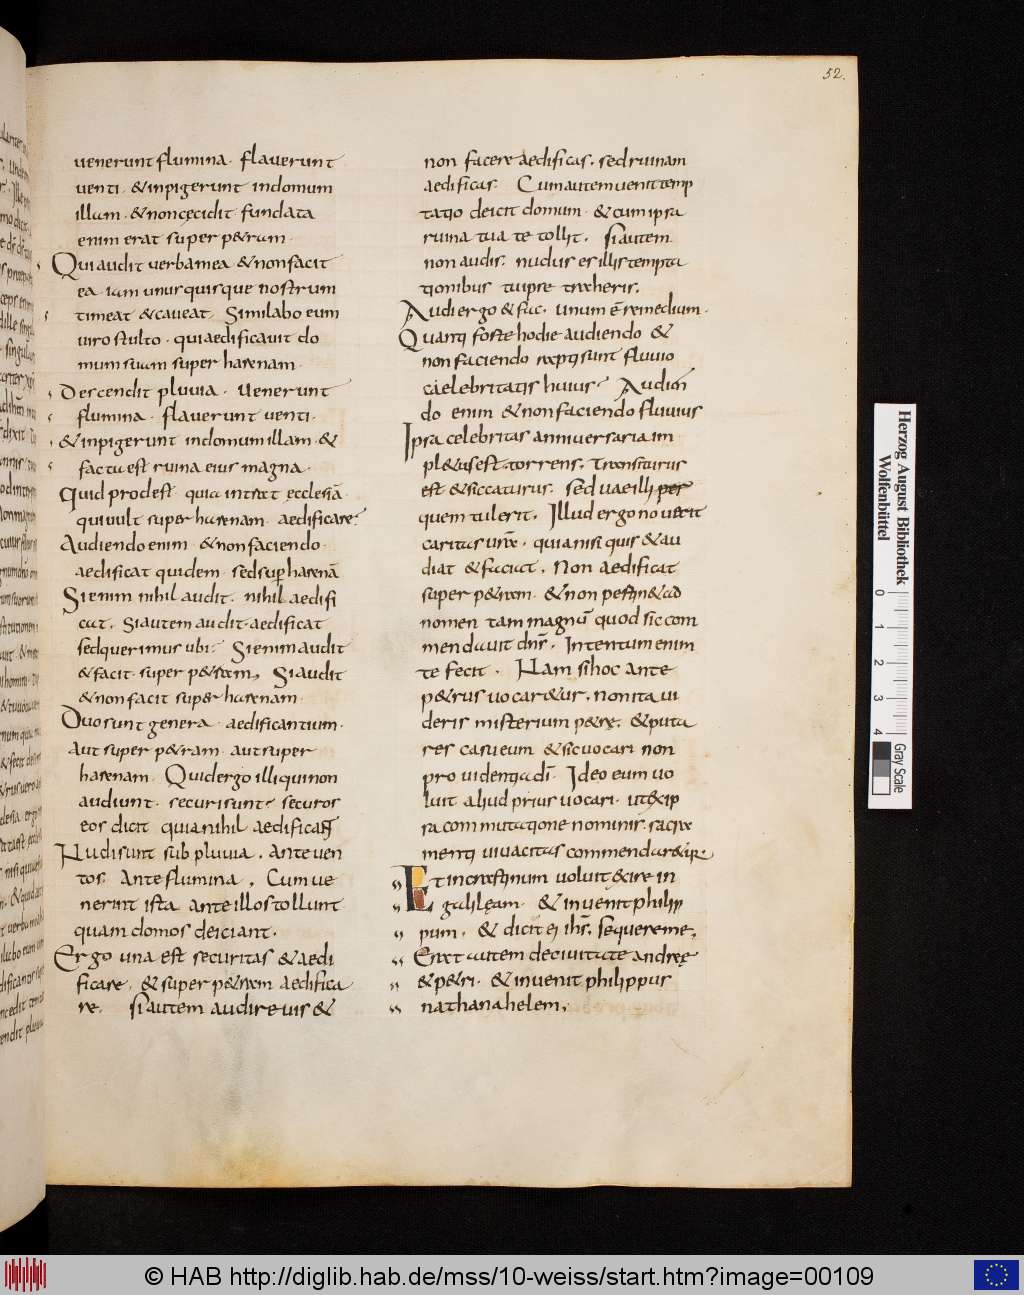 52.
uenerunt flumina. flauerunt
uenti. & inpigerunt indomum
illam. & noncecidit fundata
enim erat super p&ram.
Qui audit uerbamea & nonfacit
ea. iam unusquisque nostrum
timeat & caueat. Similabo eum
uiro stulto. qui aedificauit do
mum suam super harenam.
Descendit pluuia. uenerunt
flumina. flauerunt uenti.
& inpigerunt indomum illam. &
facta est ruina eius magna.
Quid prodest quia intrat ecclesiā
qui uult super harenam. aedificare?
Audiendo enim. & nonfaciendo.
aedificat quidem. sed sup harenā
Si enim nihil audit. nihil aedifi
cat. Siautem audit. aedificat
sed querimus ubi. Si enim audit
& facit. super p&ram, Si audit
& non facit super harenam.
Duo sunt genera. aedificantium.
Aut super p&ram. aut super
harenam. Quid ergo illi qui non
audiunt. securi sunt? securos
eos dicit quia nihil aedificant
Nudi sunt sub pluuia. Ante uen
tos. Ante flumina, Cum ue
nerint ista ante illos tollunt
quam domos deiciant.
Ergo una est securitas & aedi
ficare. & super p&ram. aedifica
re. Si autem audire uis &
non facere aedificas. sed ruinam
aedificas. Cum autem uenit temp
tatio deicit domum. & cum ipsa
ruina tua te tollit. Si autem
non audis. nudus es illis tempta
tionibus tu ipse traheris.
Audi ergo & fac. unum ē remedium.
Quanti forte hodie audiendo &
non faciendo rapti sunt fluuio
caelebritatis huius. Audien
do enim & non faciendo fluuius
Ipsa celebritas anniuersaria im
pl&us est. torrens. Transiturus
est & siccaturus. Sed uae illi per
quem tulerit. Illud ergo nouerit
caritas ura. quia nisi quis & au
diat & faciat. Non aedificat
super p&ram. & non p&
nomen tam magnū quod sic com
mendauit dnś. Intentum enim
te fecit. Nam si hoc ante
p&rus uocar&ur. non ita ui
deris misterium p&re. & puta
res casu eum & sic uocari non
prouidentia dī. Ideo eum uo
luit aliud prius uocari. ut & ip
sa commutatione nominis. sacra
menti uiuacitas commendar&ur.
Et in crastinum uoluit exire in
galileam. & inuenit philip
pum. & dicit ei ihs. sequere me.
Erat autem deciuitate andreę
& p&ri. & inuenit philippus
nathanahelem.
Herzog August Bibliothek
Wolfenbüttel
0 1 2 3 4
Gray Scale
© HAB http://diglib.hab.de/mss/10-weiss/start.htm?image=00109